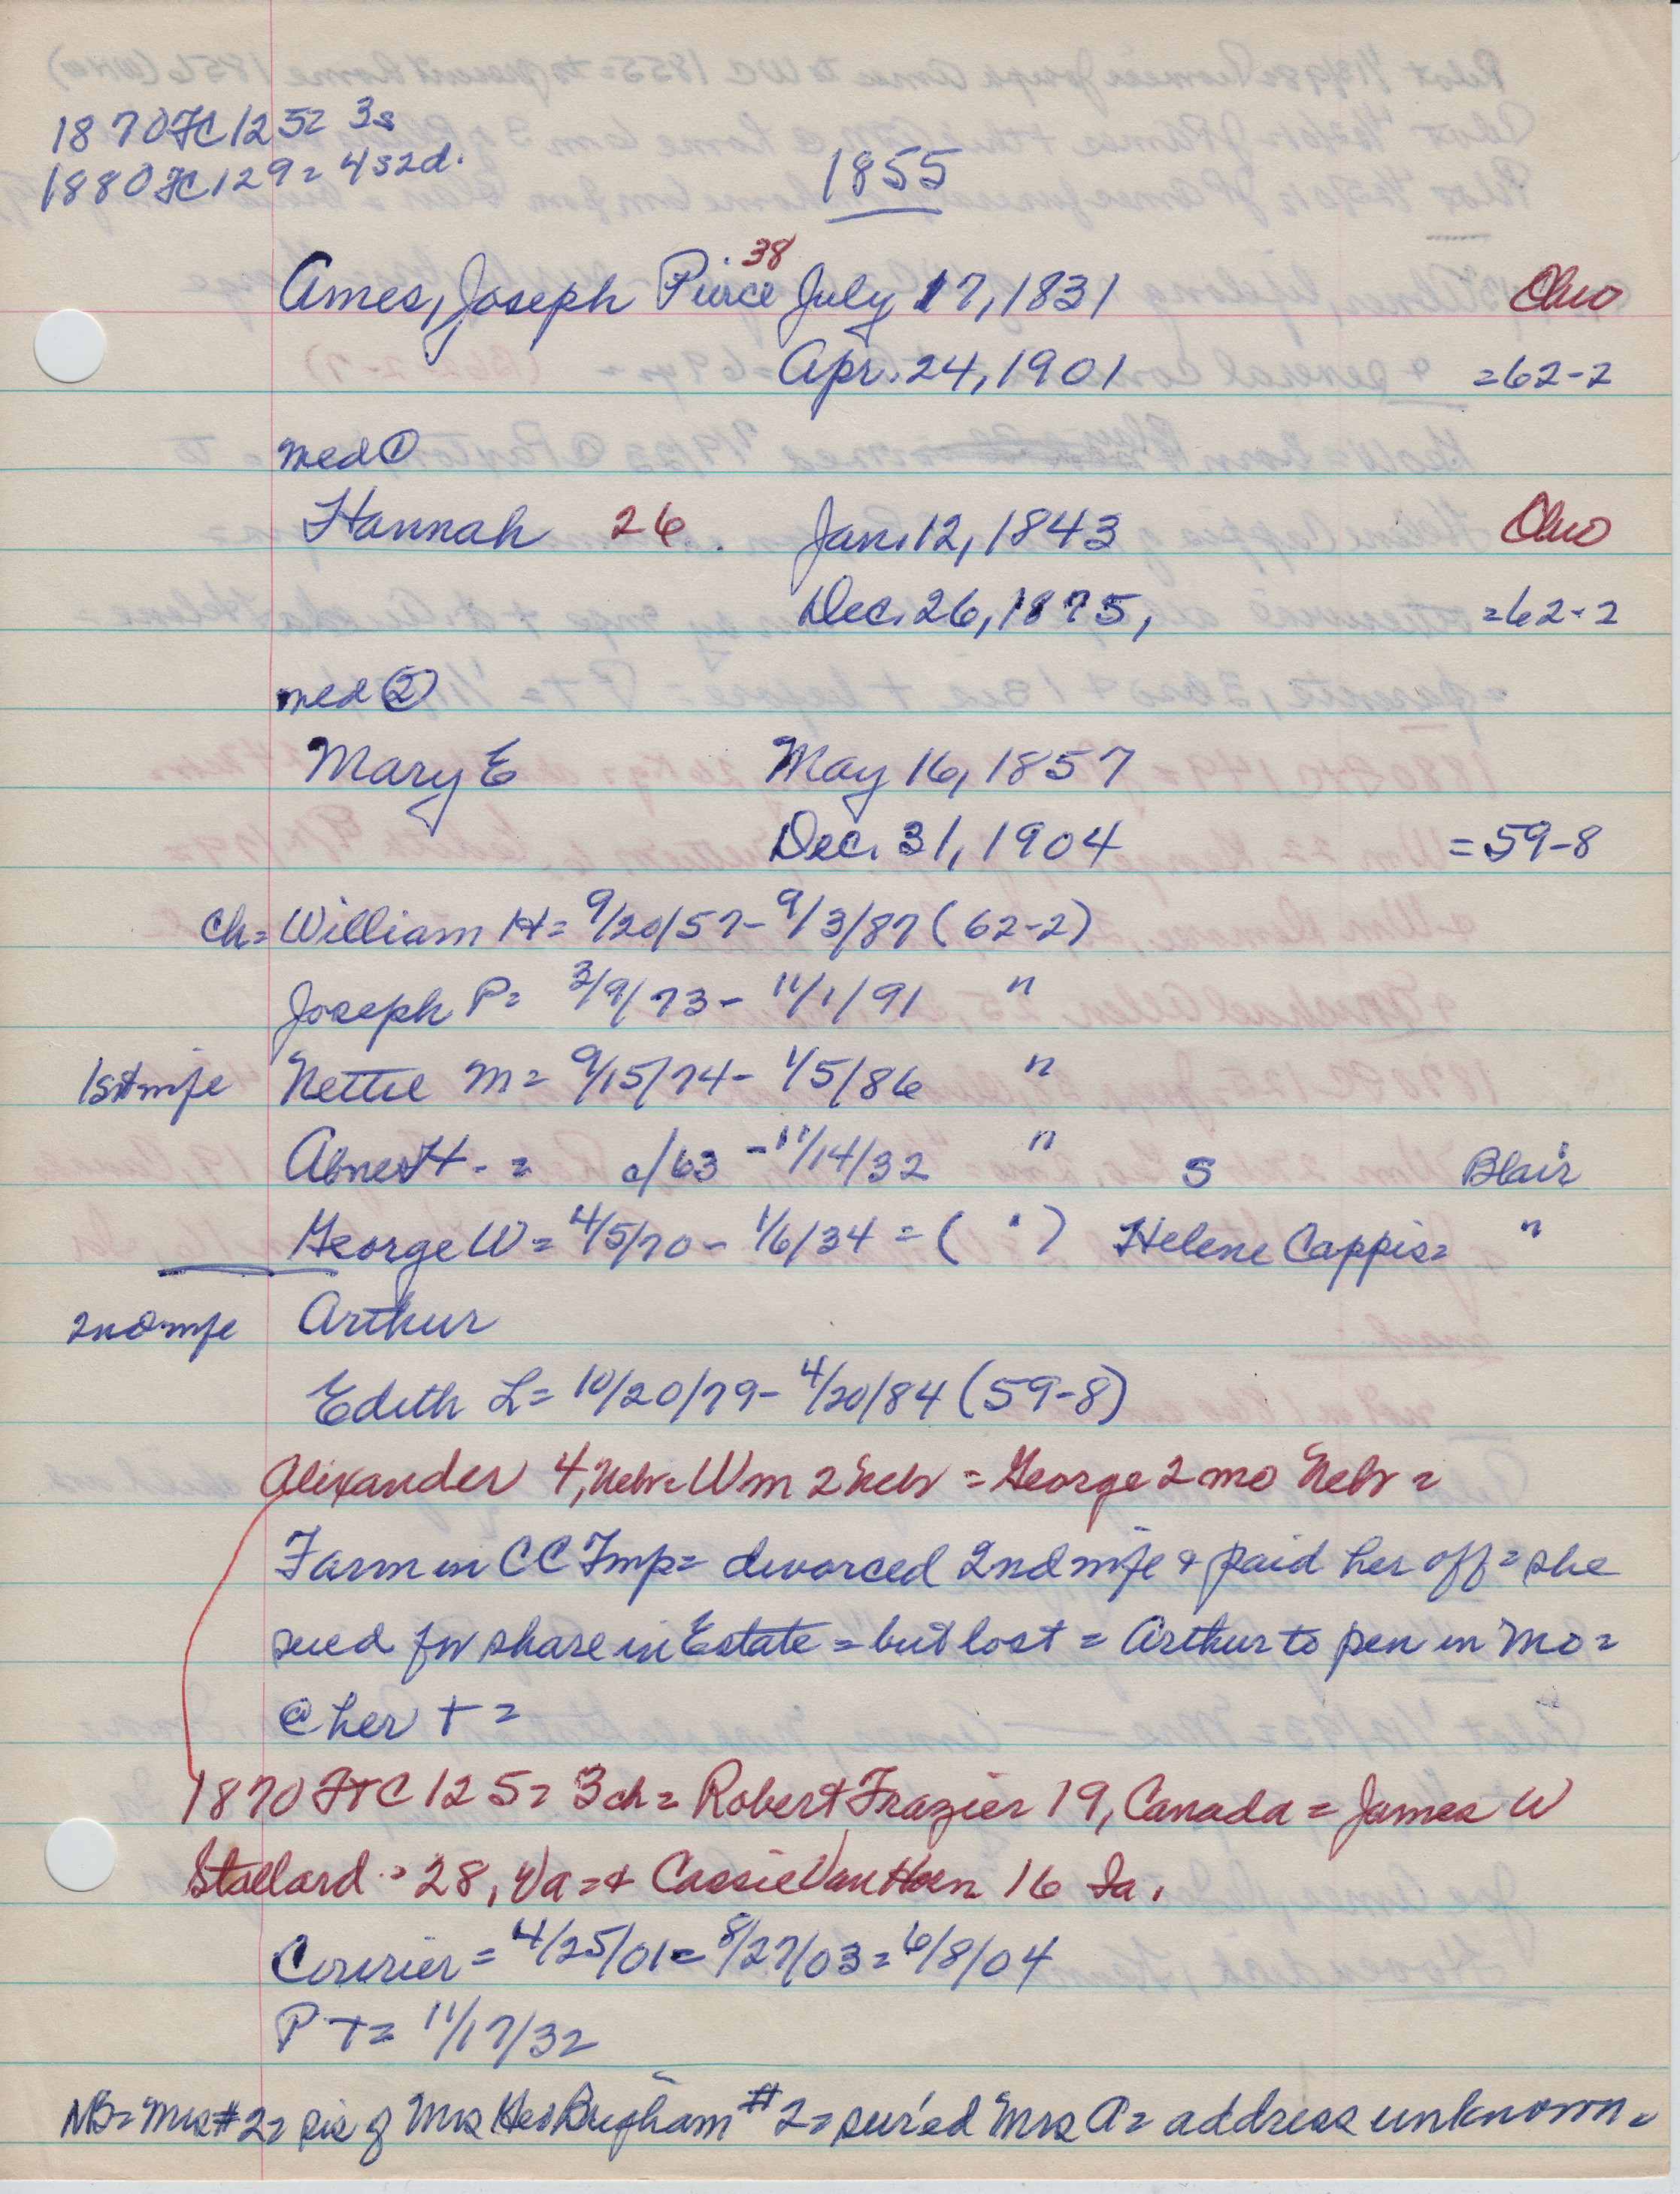 1870 FC 125 = 3s
1880 FC 129 = 4s2d.
1855
Ames, Joseph Pierce 38 July 17, 1831 Ohio
Apr. 24, 1901 = 62-2
med ①
Hannah 26 Jan. 12, 1843 Ohio
Dec. 26, 1875, = 62-2
med ②
Mary E May 16, 1857
Dec. 31, 1904 = 59-8
Ch = William H = 9/20/57 - 9/3/87 (62-2)
Joseph P = 3/9/73 - 11/1/91 "
1st wife Nettie M = 9/15/74 - 1/5/86 "
Abner H - = c/63 - 11/14/32 " S Blair
George W = 4/5/70 - 1/6/34 = ( " ) Helene Cappis = "
2nd wife Arthur
Edith L = 10/20/79 - 4/20/84 (59-8)
Alexander 4, Nebr = Wm 2 Nebr = George 2 mo Nebr =
Farm in CC Tmp = divorced 2nd wife & paid her off = she
sued for share in Estate = but lost = Arthur to pen in Mo =
@ her + =
1870 FTC 125 = 3 ch = Robert Frazier 19, Canada = James W
Stallard = 28, Va = & Cassie Van Horn 16 Ia.
Courier = 4/25/01 = 8/27/03 = 6/8/04
PT = 11/17/32
NB = Mrs #2 = sis of Mrs Brigham #2 = sur'ed Mrs A = address unknown =